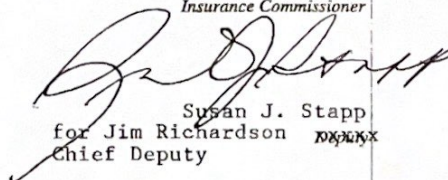 Insurance Commissioner
Susan J. Stapp
for Jim Richardson
Chief Deputy